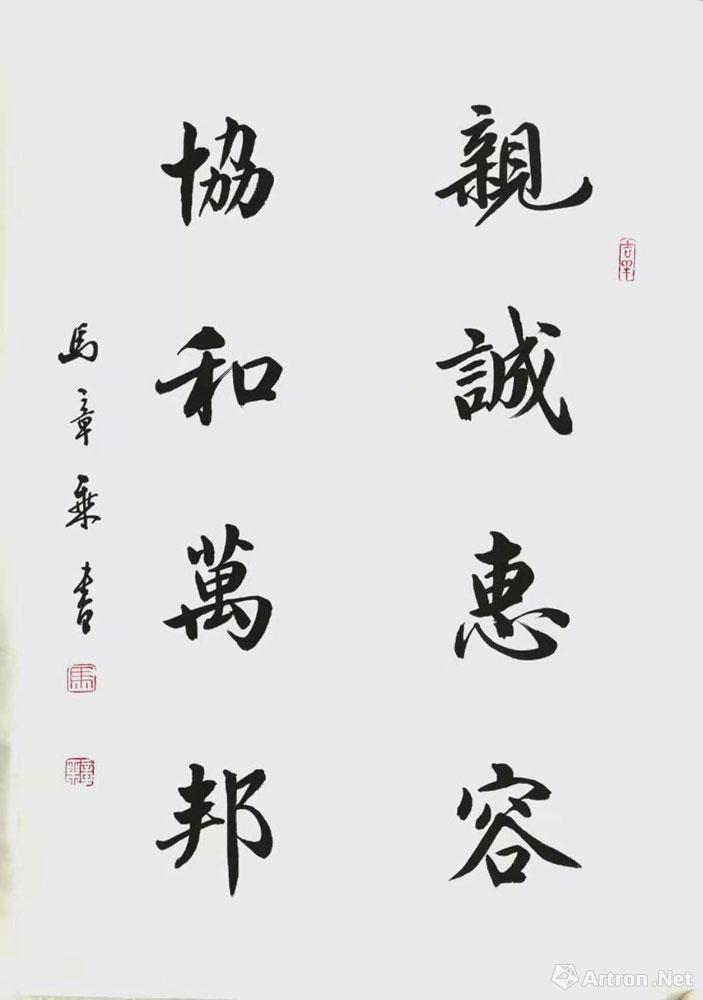 親誠惠容
協和萬邦
馬章乘書
馬
Artron.Net